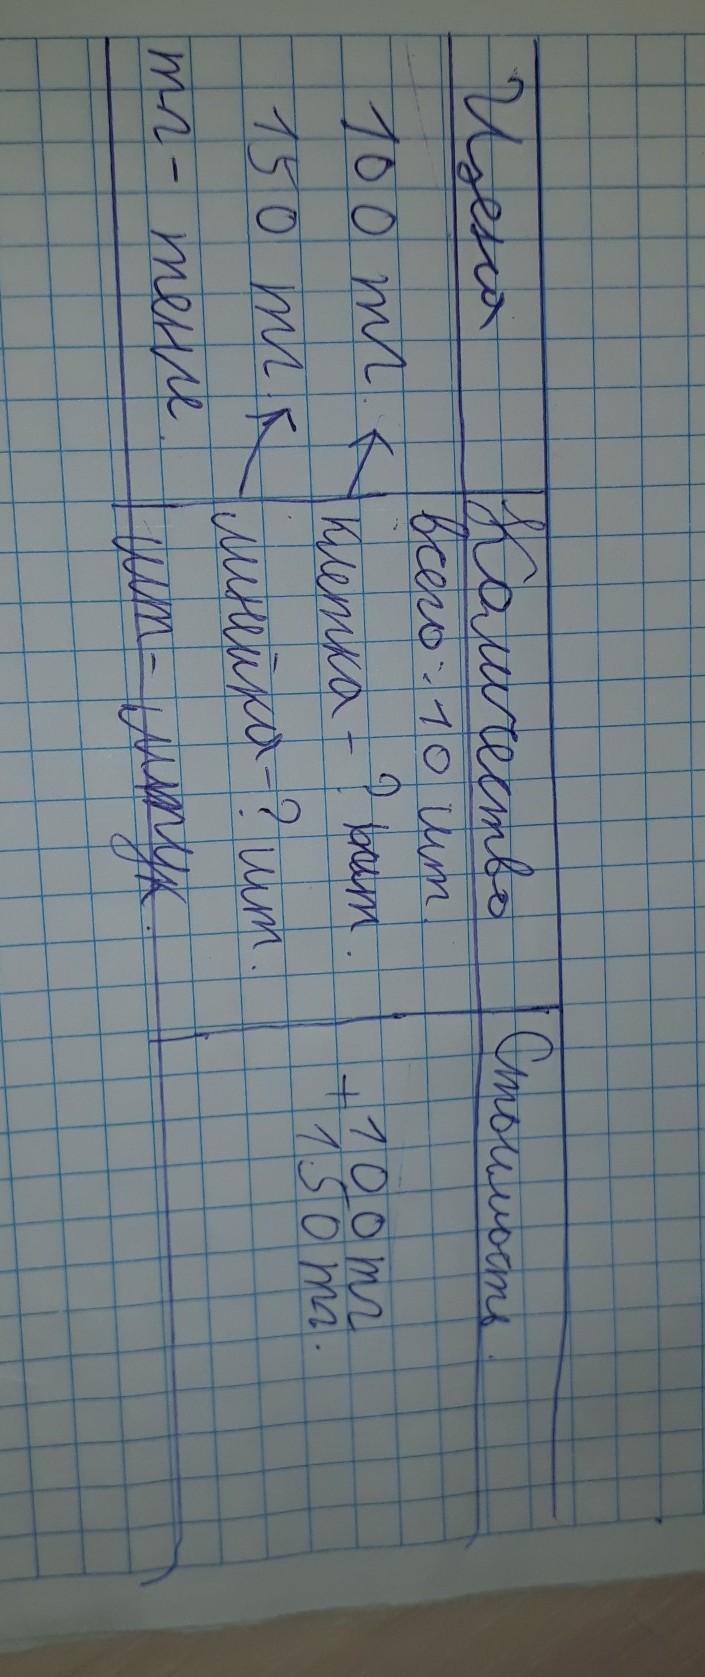 Цена Количество Стоимость.
всего: 10 шт.
100 тг. клетка - ? шт. + 100 тг
150 тг. линейка - ? шт. 150 тг.
тг - тенге. шт - штук.